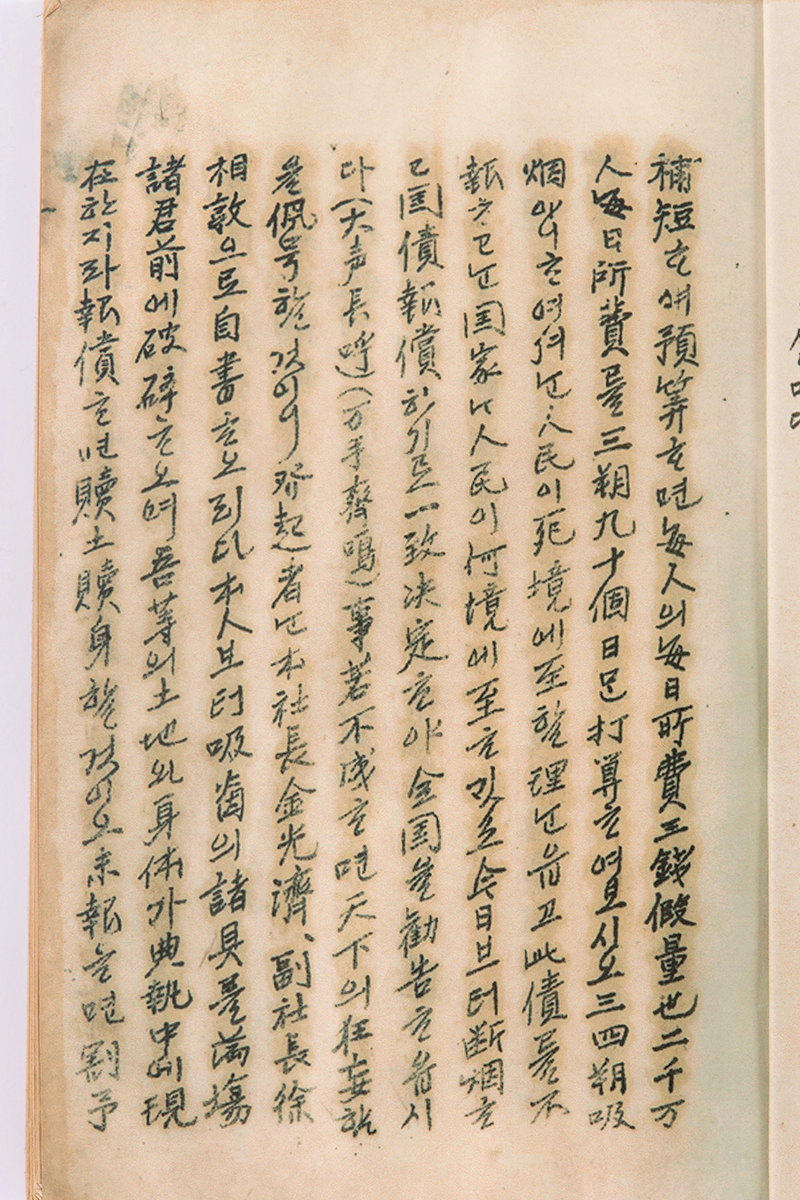 補短ᄒᆞ며預筭ᄒᆞ면每人의每日所費三錢假量也二千万
人每日所費를三朔九十個日로打算ᄒᆞ여보시오三四朔吸
烟아니ᄒᆞ여서는人民이死境에至ᄒᆞᆯ理는有고此債를不
報ᄒᆞ고는国家나人民이何境에至ᄒᆞ깃소今日브터断烟ᄒᆞ
고国債報償ᄒᆞ기로一致決定ᄒᆞ야全国을勸告ᄒᆞᆸ시
다(大声長呼)(万手齊鳴)事若不成ᄒᆞ면天下의狂妄ᄒᆞᆫ
是佩号ᄒᆞᆯ것이니發起者는本社長金光濟、副社長徐
相敦으로自書ᄒᆞ오리다本人브터吸烟의諸具를滿塲
諸君前에破碎ᄒᆞ오며吾等의土地와身体가典執中에現
在한지라報償ᄒᆞ면贖土贖身ᄒᆞᆯ것이오未報ᄒᆞ면割予